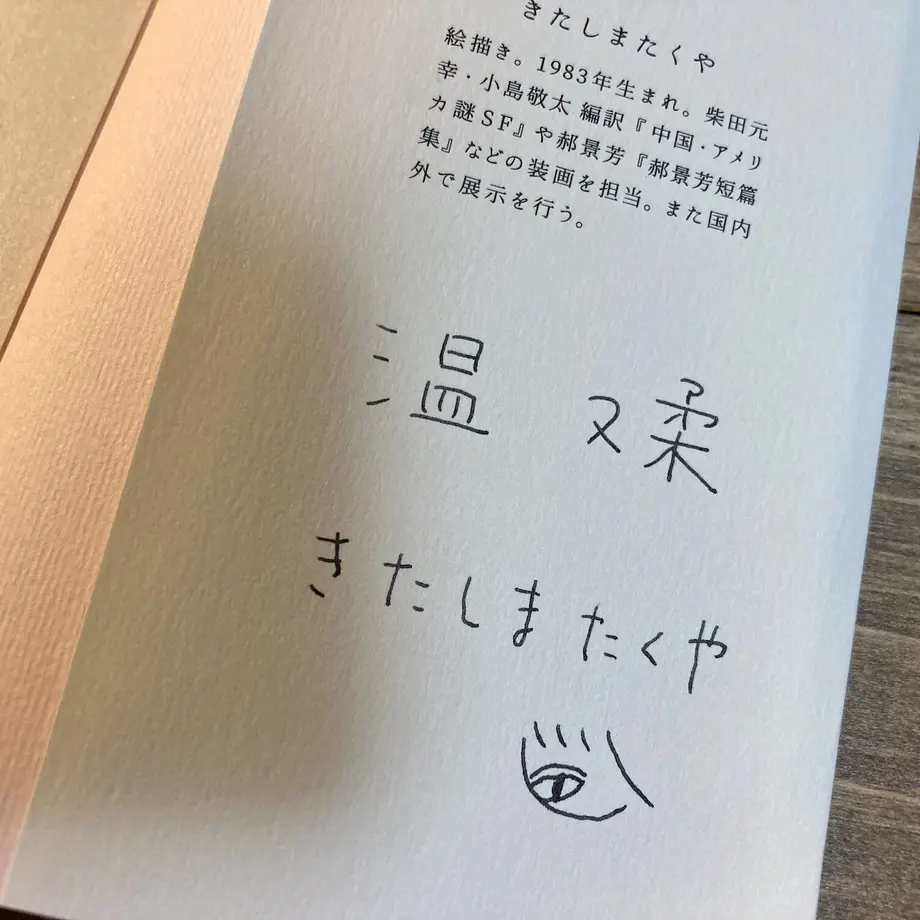 きたしまたくや
絵描き。1983年生まれ。柴田元
幸・小島敬太 編訳『中国・アメリ
カ謎SF』や郝景芳『郝景芳短篇
集』などの装画を担当。また国内
外で展示を行う。
温 又柔
きたしま たくや